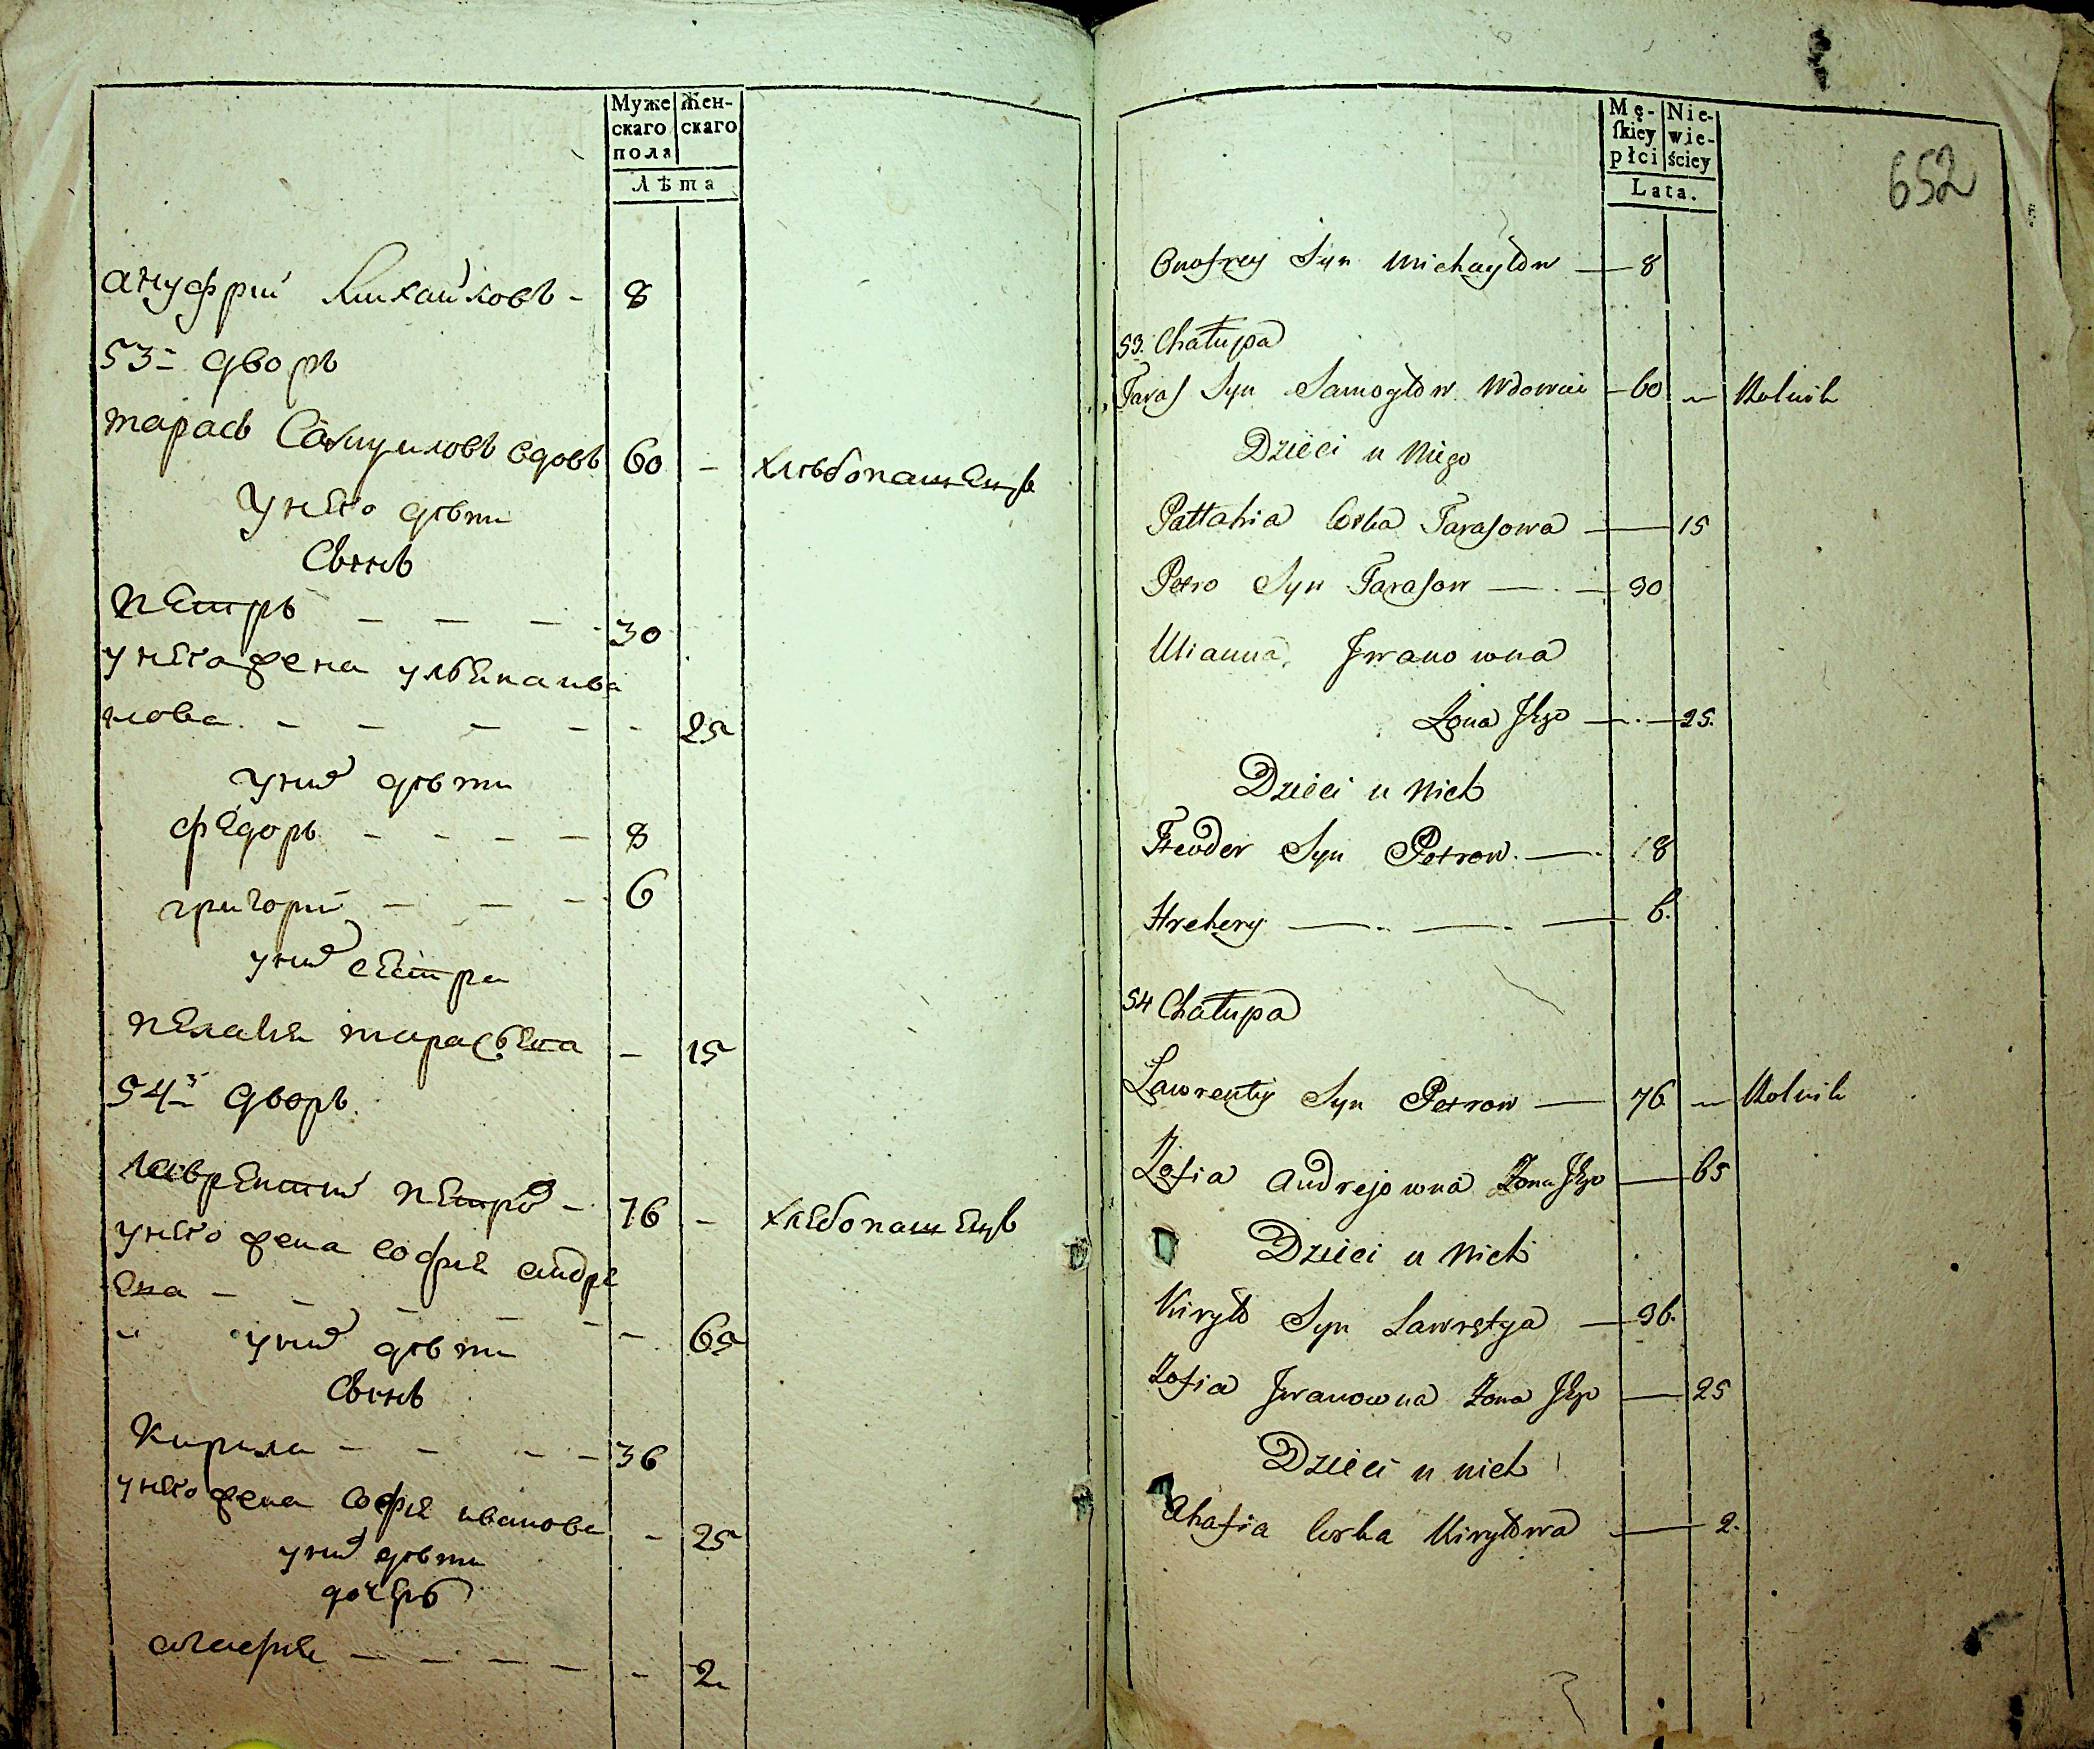 Муже
скаго
пола
Жен-
скаго
Лѣта
ануфрий Михайловъ - 8
53й дворъ
тарасъ Самуиловъ вдовъ 60 - хлѣбопашецъ
унего дѣти
Сынъ
петръ - - - - 30
унего жена ульяна ива
нова - - - - - 25
уних дѣти
федоръ - - - - 8
григорий - - - 6
уних сестра
пелагия тарасьева - 15
54й дворъ
лаврентий петров - 76 - хлебопашецъ
унего жена софия андре
ева - - - - - - 65
уних дѣти
Сынъ
Кирила - - - - 36
унего жена софия иванова - 25
уних дѣти
дочерь
агафия - - - - - 2
Mę-
skiey
płci
Nie-
wie-
ściey
Lata.
652
Onofrey Syn Michayłow — 8
53. Chałupa
Taras Syn Samoyłow Wdowiec - 60 - Rolnik
Dzieci u Niego
Pałłahia Corka Tarasowa — 15
Petro Syn Tarasow — . — 30
Ulianna Jwanowna
Żona Jego — . — 25.
Dzieci u Nich
Fteoder Syn Petrow . — . 8
Hrehery — . — . — 6.
54 Chałupa
Lawrentiy Syn Petrow — 76 - Rolnik
Zofia Andrejowna Żona Jego — 65
Dzieci u Nich
Kiryło Syn Lawrętya — 36.
Zofia Jwanowna Żona Jego — 25
Dzieci u nich
Ahafia Corka Kiryłowa — 2.